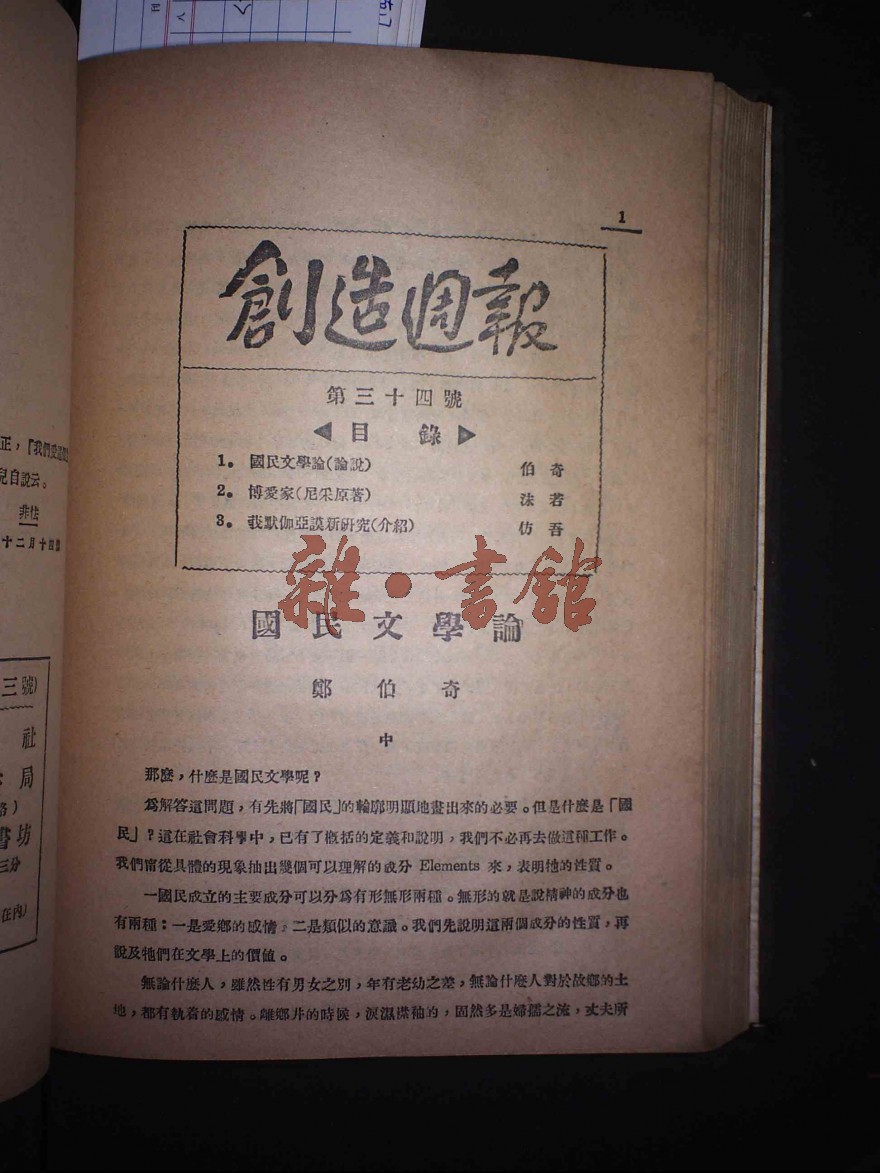 1
創造週報
第三十四號
◀目 錄▶
1。 國民文學論(論說) 伯奇
2。 博愛家(尼采原著) 沫若
3。 莪默伽亞謨新研究(介紹) 仿吾
雜·書館
國民文學論
鄭伯奇
中
那麼,什麼是國民文學呢?
爲解答這問題,有先將「國民」的輪廓明顯地畫出來的必要。但是什麼是「國
民」?這在社會科學中,已有了概括的定義和說明,我們不必再去做這種工作。
我們甯從具體的現象抽出幾個可以理解的成分 Elements 來,表明牠的性質。
一國民成立的主要成分可以分爲有形無形兩種。無形的就是說精神的成分也
有兩種:一是愛鄉的感情,二是類似的意識。我們先說明這兩個成分的性質,再
說及牠們在文學上的價值。
無論什麼人,雖然性有男女之別,年有老幼之差,無論什麼人對於故鄉的土
地,都有執着的感情。離鄉井的時候,淚濕襟袖的,固然多是婦孺之流,丈夫所
正,「我們愛
兒自說云。
非佳
十二月十四
三號)
社
局
路)
書坊
三分
在內)